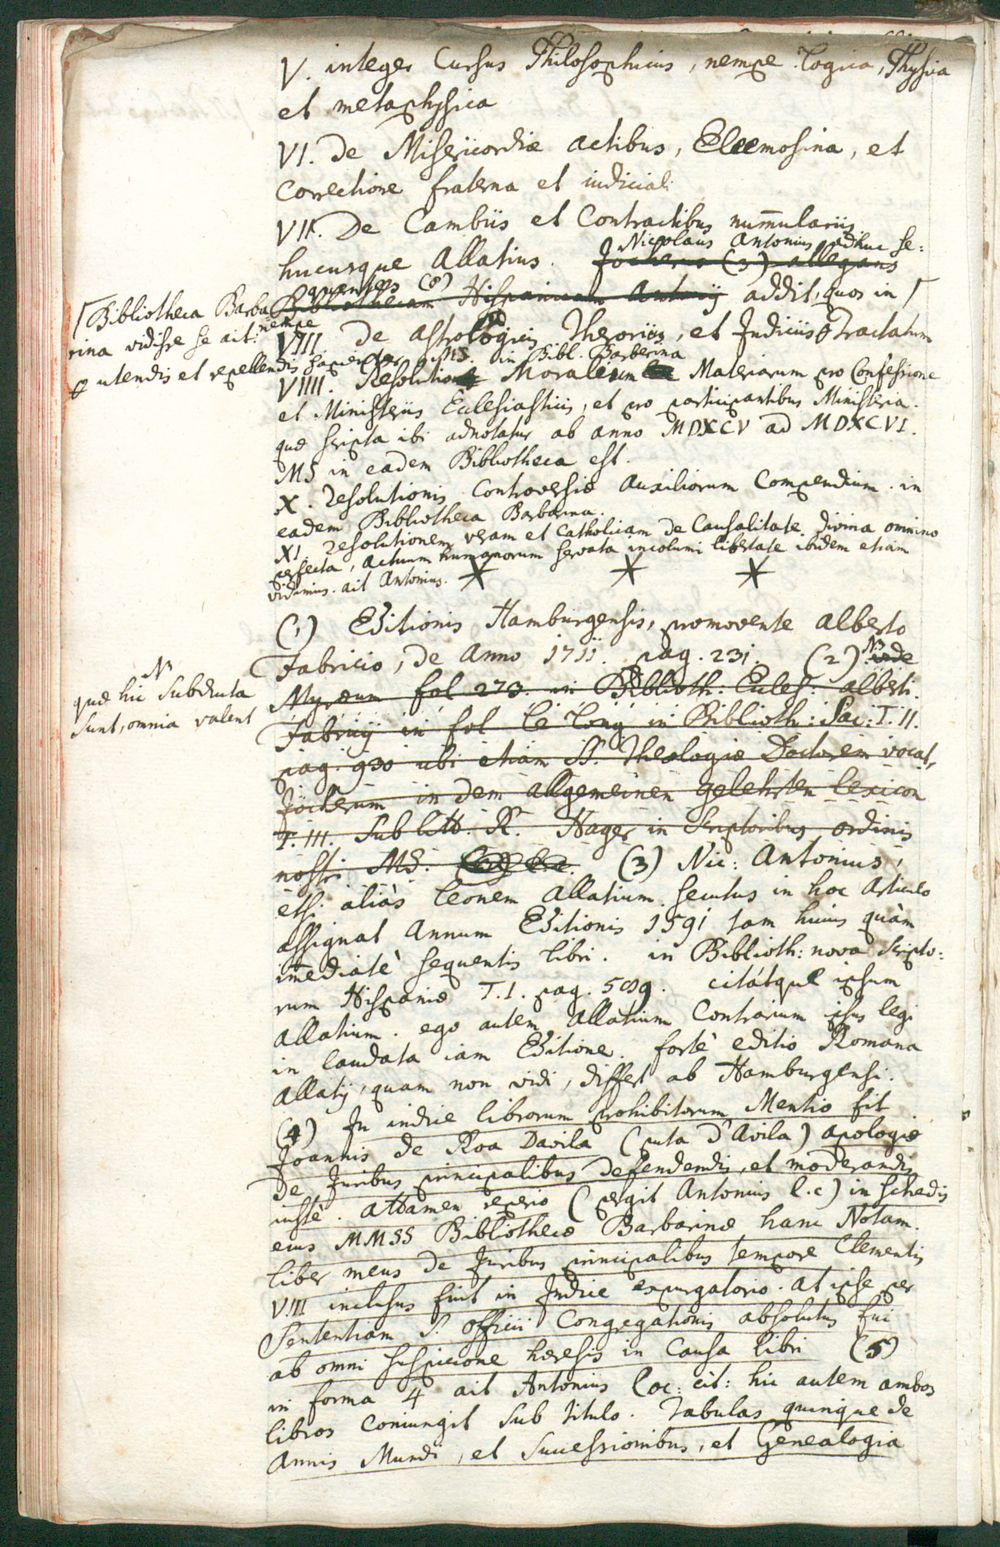 V. integer Cursus Philosophicus, nempe Logica, Physica
et metaphysica
VI. De Misericordiæ actibus, Eleemosina, et
Correctione fraterna et iudiciali
VII. De Cambiis et Contractibus nummulariis
Nicolaus Antonius adhuc se:
hucusque Allatius. Jocherus (3) allegans
quentes (8)
Bibliothecam Hispanicam Antonij addit, quos in
Bibliotheca Barba
rina vidisse se ait: nempe
VIII. De astrologicis Theoriis, et Judiciis Tractatum
utendis et repellendis sapienter MS. in Bibl. Barberina
VIIII. Resolution Moralium Materiarum pro Confessione
et Ministeriis Ecclesiasticis, et pro participantibus Ministeria.
quæ scripta ibi adnotatur ab anno MDXCV ad MDXCVI.
MS in eadem Bibliotheca est.
X. Resolutionis Controversiæ Auxiliorum Compendium. in
eadem Bibliotheca Barbarina.
XI. Resolutionem veram et Catholicam de Causalitate divina omnino
perfecta, Actuum humanorum servata incolumi libertate ibidem etiam
vidimus. ait Antonius.
(1) Editionis Hamburgensis, promovente Alberto
Fabricio, de Anno 1711. pag. 231. (2)
N
quæ hic Subducta
sunt, omnia valent
Myræum fol 273. in Biblioth: Eccles: Alberti
Fabricij in fol Le Long in Biblioth: Sac: T. II.
pag. 930 ubi etiam SS. Theologiæ Doctorem vocat,
Jöcherum in dem allgemeinen Gelehrten Lexicon
T. III. Sub litt. R. Hager in Scriptoribus ordinis
nostri MS. (3) Nic: Antonius,
etsi aliàs Leonem Allatium secutus in hoc Articulo
assignat Annum Editionis 1591 tam huius quàm
immediatè sequentis libri. in Biblioth: nova Scripto:
rum Hispaniæ T. I. pag. 589. citátque ipsum
Allatium. ego autem Allatium Contrarium ipsus legi
in laudata iam Editione. fortè editio Romana
Allatij, quam non vidi, differt ab Hamburgensi.
(4) In indice librorum prohibitorum Mentio fit
Joannis de Roa Davila (puta d'Avila) apologiæ
de Juribus principalibus defendendis, et moderandis
iustè. Attamen reperio (pergit Antonius l.c) in schedis
eius MMSS Bibliothecæ Barbarinæ hanc Notam.
liber meus de Juribus principalibus tempore Clementis
VIII inclusus fuit in Indice expurgatorio. at ipse per
Sententiam S. officii Congregationis absolutus fui
ab omni suspicione hæresis in Causa libri (5)
in forma 4 ait Antonius loc: cit: hic autem ambos
libros Coniungit Sub titulo. Tabulas quinque de
Annis Mundi, et Successionibus, et Genealogia